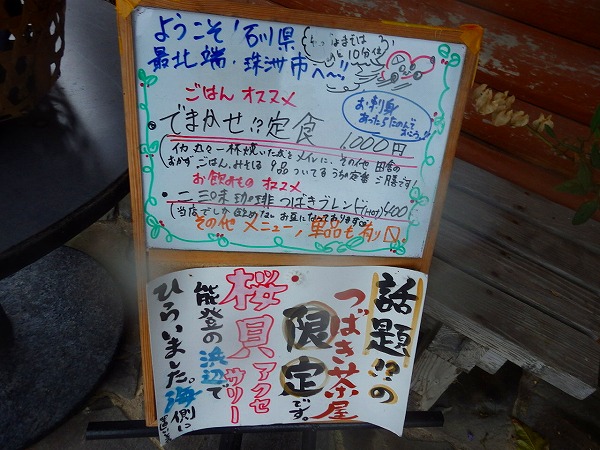 ようこそ!石川県
最北端・珠洲市へ〜!!
あと10分位
ごはん オススメ
でまかせ!?定食 1,000円
お刺身
あったらたのんで
おこう!!
イカ丸々一杯焼いた皮をメインに、その他 田舎の
おかず ごはん、みそしる 9品ついてる うちの定番 ご膳です!
お飲みもの オススメ
・二三味珈琲 つばきブレンド(HOT) 400
当店でしか飲めない お豆になっております
その他 メニュー、単品も有り
話題!?の
つばき茶屋
限定です。
桜貝アクセサリー
能登の浜辺で
ひろいました。海側に